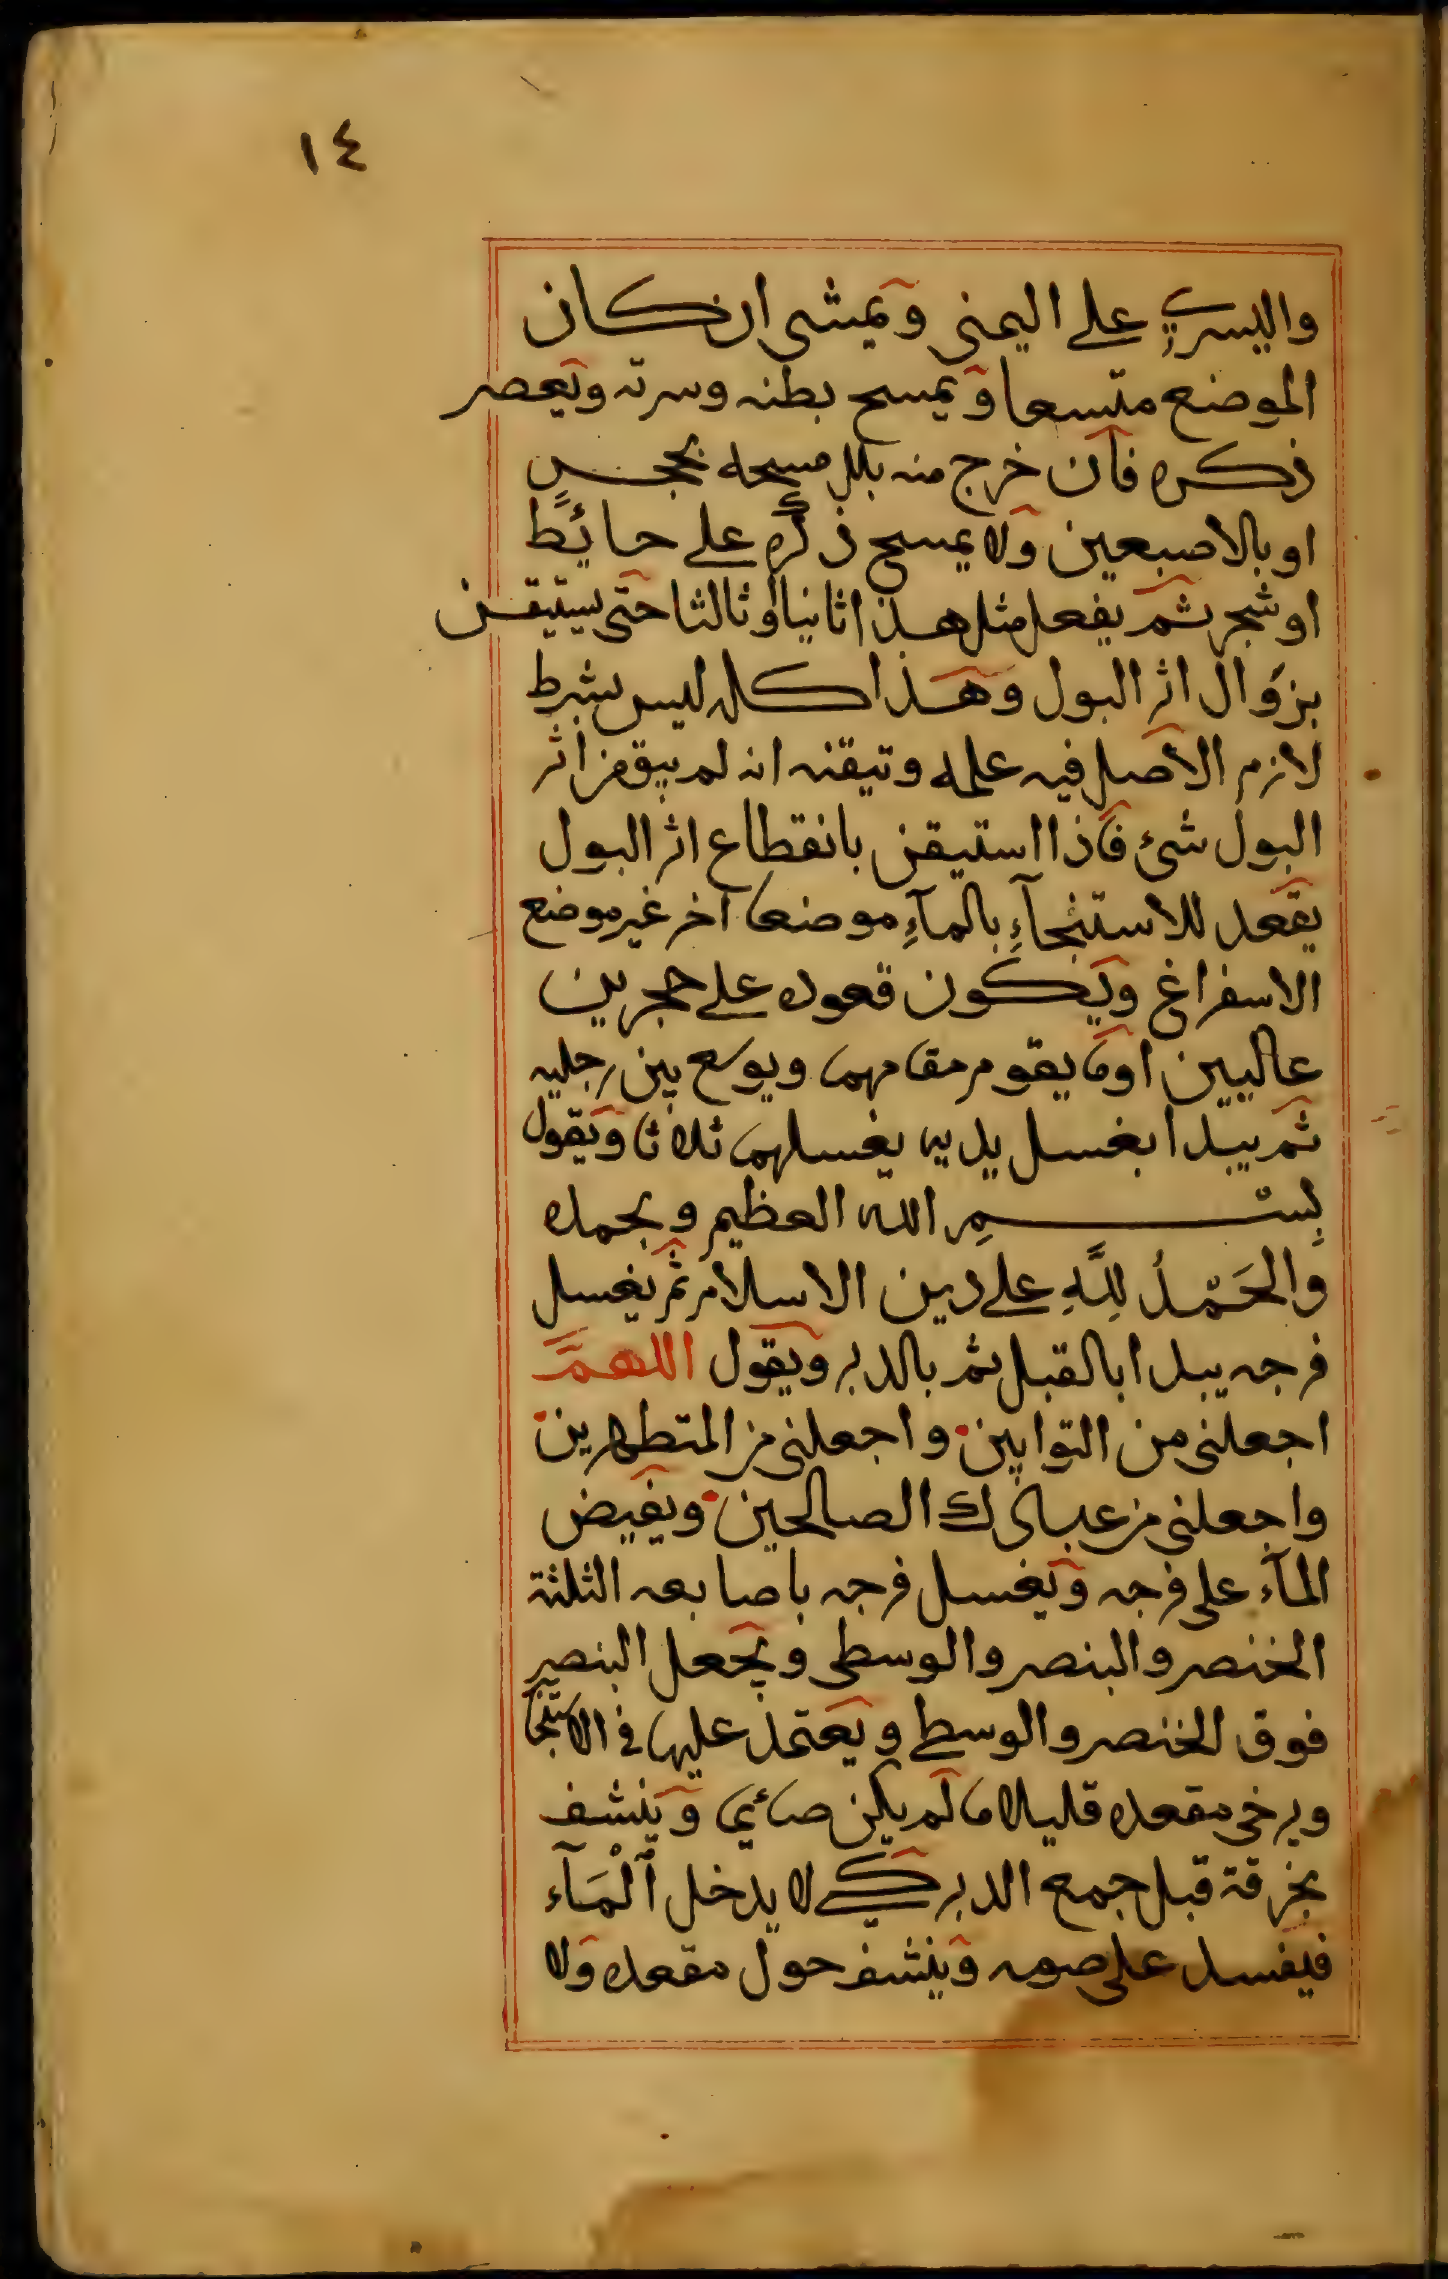 ١٤
واليسرى على اليمنى ويمشى ان كان
الموضع متسعا ويمسح بطنه وسرته ويعصر
ذكره فان خرج منه بلل مسحه بحجر
او بالاصبعين ولا يمسح ذكره على حائط
او شجر ثم يفعل مثل هذا ثانيا وثالثا حتى يستيقن
بزوال اثر البول وهذا كله ليس بشرط
لازم الاصل فيه علمه وتيقنه انه لم يبق من اثر
البول شئ فاذا استيقن بانقطاع اثر البول
يقعد للاستنجآءِ بالمآءِ موضعا آخر غير موضع
الاسفراغ ويكون قعوده على حجرين
عاليين او ما يقوم مقامهما ويوسع بين رجليه
ثم يبدا بغسل يديه يغسلهما ثلاثا ويقول
بِسْمِ الله العظيم وبحمده
والحَمْدُ لِلَّهِ على دين الاسلام ثم يغسل
فرجه يبدا بالقبل ثم بالدبر ويقول اللهمَّ
اجعلنى من التوابين واجعلنى من المتطهرين
واجعلنى من عبادك الصالحين ويفيض
المآء على فرجه ويغسل فرجه باصابعه الثلثة
الخنصر والبنصر والوسطى ويجعل البنصر
فوق الخنصر والوسطى ويعتمد عليها فى الاستنجا
ويرخى مقعده قليلا ما لم يكن صائما وينشف
بخرقة قبل جمع الدبر كى لا يدخل ٱلْمَآء
فيفسد على صومه وينشف حول مقعده ولا